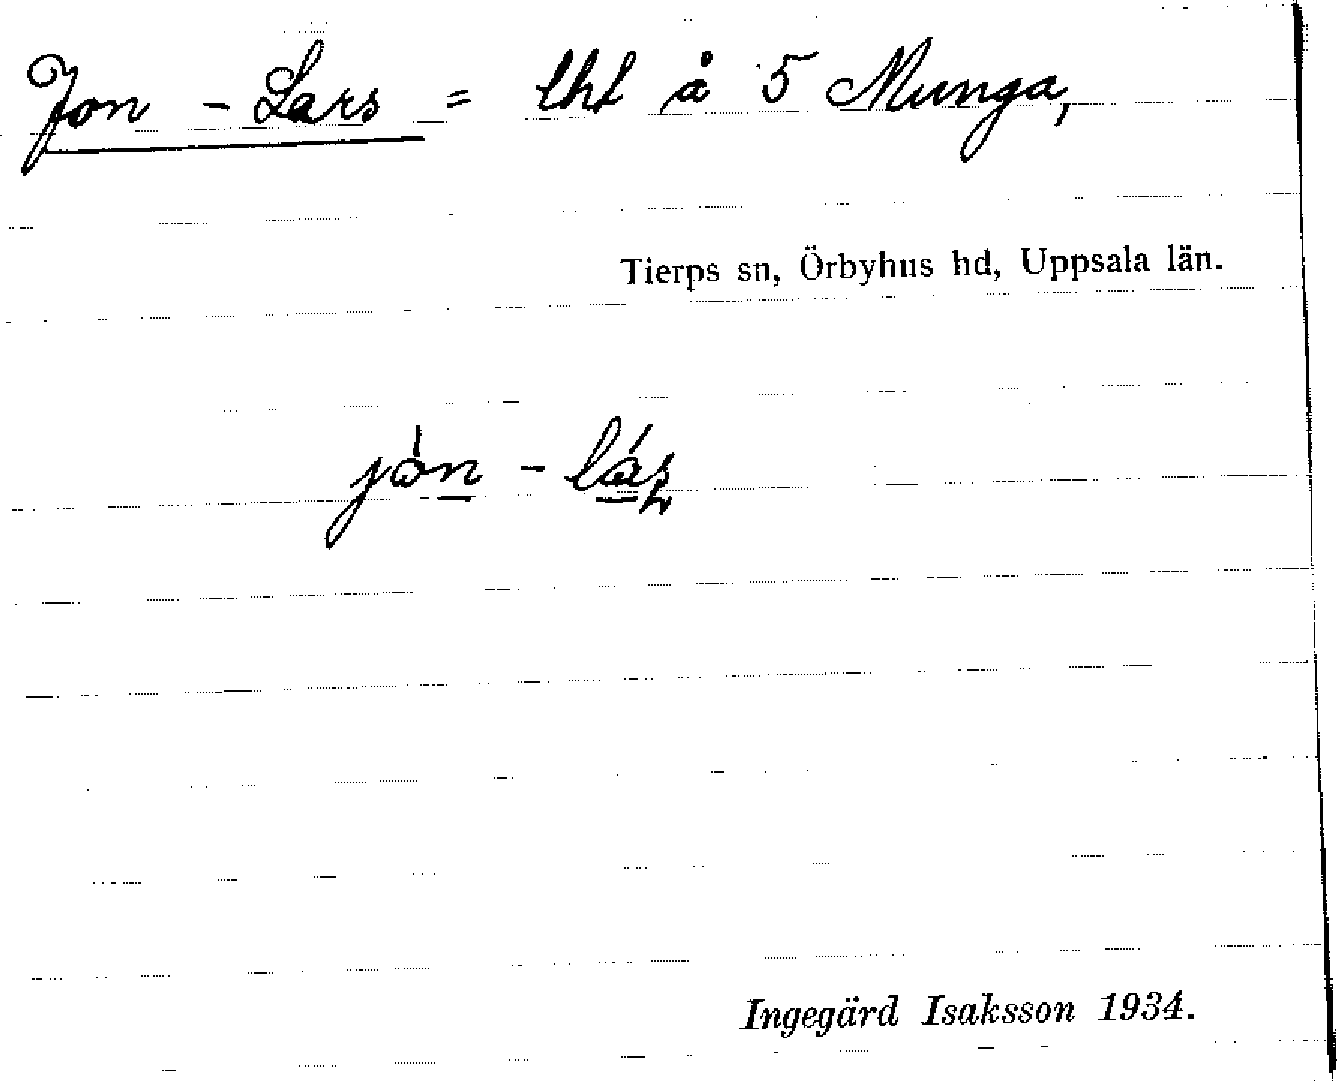 Jon - Lars = lht å 5 Munga,
Tierps sn, Örbyhus hd, Uppsala län.
jòn - láʂ
Ingegärd Isaksson 1934.